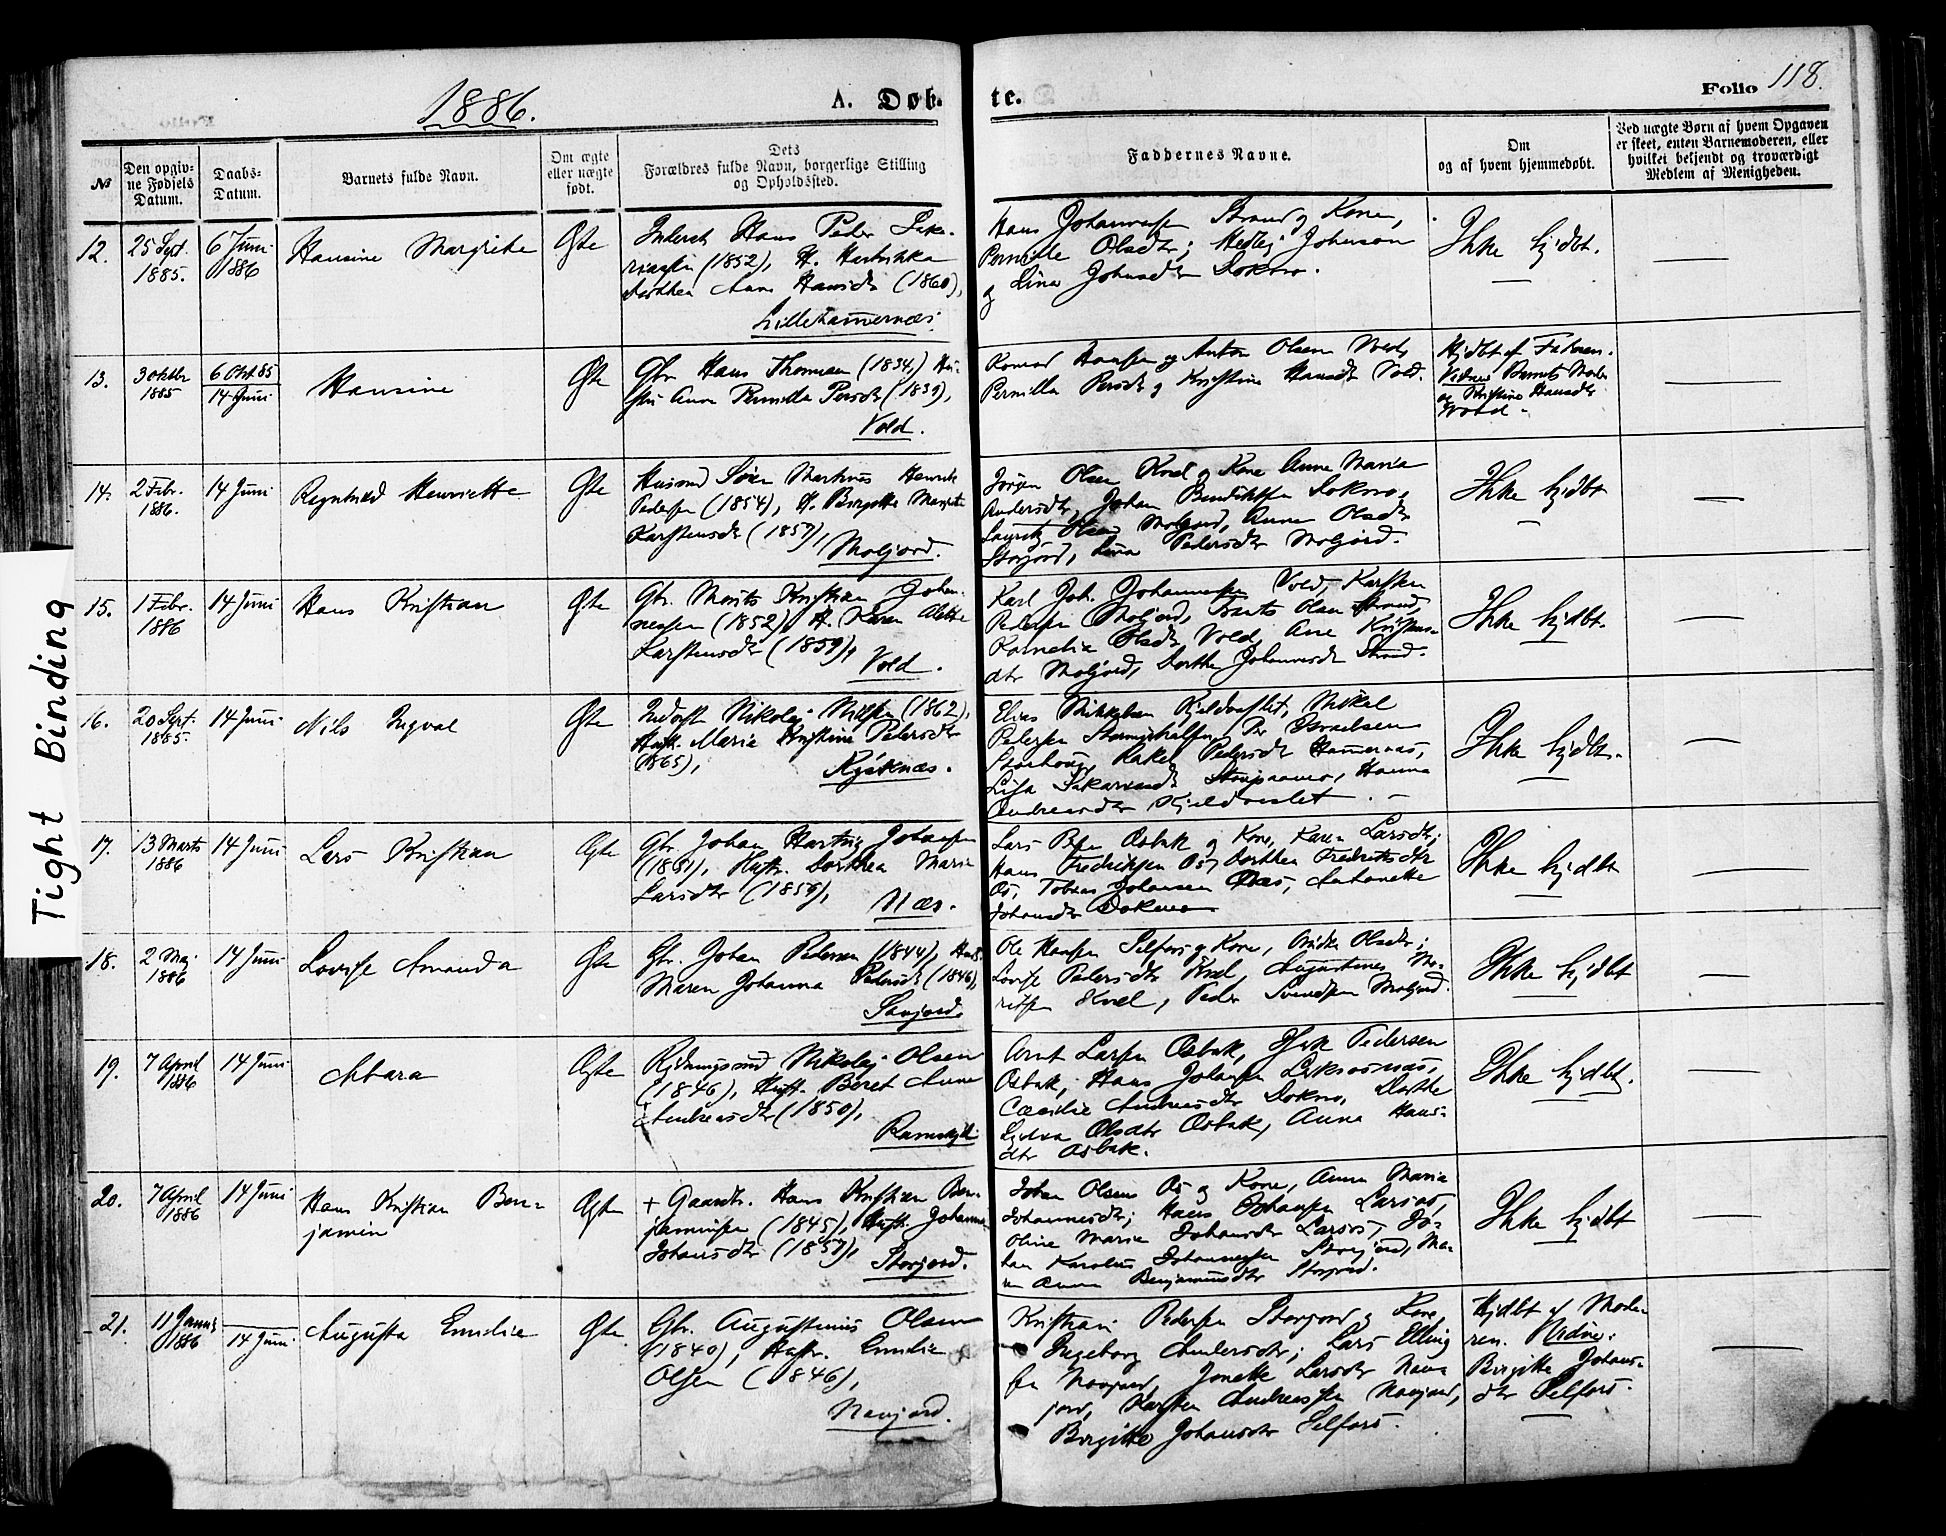 1886.
A. Døb-
te.
Folio 118.
№
Den opgiv-
ne Fødsels
Datum.
Daabs-
Datum.
Barnets fulde Navn.
Om ægte
eller uægte
født.
Dets
Forældres fulde Navn, borgerlige Stilling
og Opholdssted.
Faddernes Navne.
Om
og af hvem hjemmedøbt.
Ved uægte Børn af hvem Opgaven
er skeet, enten Barnemoderen, eller
hvilket bekjendt og troværdigt
Medlem af Menigheden.
12.
25 Sept.
1885.
6 Juni
1886
Hansine Margrethe
Ægte
Hans Peder
(1852), H.
Anne Hansdtr (1860),
Hans Johannessen Strand og Kone,
Pernille Olsdtr; Johnson
og Lina Johnsdtr Dokmo.
Ikke hjdbt.
13.
3 Oktbr
1885
6 Okt 85
14 Juni
Hansine
Ægte
Gbr. Hans Thomsen (1834,) Hu-
stru Anne Pernilla Persdtr (1839),
Vold.
Konrad Hansen og Anton Olsen Vold,
Pernilla Persdtr og Kristine Hansdtr Vold.
Hjdbt af Faderen.
Vidner Barnets Moder
og Kristine Hansdtr
Vold.
14.
2 Febr.
1886.
14 Juni
Henriette
Ægte
Husmd Søren Markus Henrik
Pedersen (1854), H. Birgitte Margrete
Karstensdtr (1857),
Moljord.
Jørgen Olsen Kvel og Kone Anne Maria
Andersdtr, Johan Bendiksen Dokmo,
Lauritz Olsen Moljord, Anne Olsdtr
Storjord, Lina Pedersdtr Moljord.
Ikke hjdbt
15.
1 Febr.
1886
14 Juni
Hans Kristian
Ægte
Gbr. Morits Kristian Johan-
nessen (1852), H. Karen Alette
Karstensdtr (1859),
Vold.
Karl Joh. Johannessen Vold, Karsten
Pedersen Moljord, Olsen Strand,
Kornelia Olsdtr Vold, Ane Kristens-
dtr Moljord, Dorthe Johannesdtr Strand.
Ikke hjdbt.
16.
20 Sept.
1885.
14 Juni
Nils Ingval
Ægte
Inderst Nikolaj Nilsen (1862),
Hustr. Maria Kristine Pedersdtr
(1865),
Elias Mikkelsen Mikal
Pedersen Per Israelsen
Rakel Pedersdtr Hammernæs,
Lisa Hanna
Andreasdtr
Ikke hjdbt.
17.
13 Marts
1886
14 Juni
Lars Kristian
Ægte
Gbr. Johan Hartvig Johansen
(1861), Hustr. Dorthea Maria
Larsdtr (1859),
Næs.
Lars Olsen Osbak og Kone, Karen Larsdtr;
Hans Fredriksen Os, Dorthea Fredriksdtr
Os, Tobias Johansen Næs, Antonette
Johansdtr Dokmo
Ikke hjdbt
18.
2 Maj
1886
14 Juni
Lovise Amanda
Ægte
Gbr. Johan Pedersen (1844), Hust.
Maren Johanna Pedersdtr (1846),
Storjord.
Ole Hansen Selfors og Kone, Olsdtr;
Lovise Pedersdtr Kvel, Augustinus Mo-
ritsen Kvel, Peder Svendsen Moljord
Ikke hjdbt
19.
7 April
1886
14 Juni
Abara
Ægte
Rydningsmd Nikolaj Olsen
(1846), Hustr. Beret Anne
Andreasdtr (1850),
Arnt Larsen Osbak, Isak Pedersen
Osbak, Hans Johansen
Cæcilie Andreasdtr Dokmo, Dorthe
Olsdtr Osbak, Anna Hans-
dtr Osbak.
Ikke hjdbt.
20.
7 April
1886
14 Juni
Hans Kristian Ben-
jamin
Ægte
+ Gaardbr. Hans Kristian Ben-
jaminsen (1845), Hustr. Johanna
Johansdtr (1857),
Storjord.
Johan Olsen Os og Kone, Anne Maria
Johannesdtr; Hans Johansen Larsos,
Oline Maria Johansdtr Larsos, Jo-
han Karolus Johannessen Storjord, Ma-
Anna Benjaminsdtr Storjord.
Ikke hjdbt
21.
11 Januar
1886
14 Juni
Augusta Emilie
Ægte
Gbr. Augustinus Olsen
(1840), Hustr. Emilie
Olsen (1846),
Navjord.
Kristian Pedersen Storjord og Kone,
Ingeborg Andersdtr; Lars Elling-
sen Navjord, Jonette Larsdtr Nav-
jord, Karsten Andreassen Navjord,
Birgitte Johansdtr Selfors.
Hjdbt af Mode-
ren. Vidne:
Birgitte Johans-
dtr Selfors.
Tight Binding